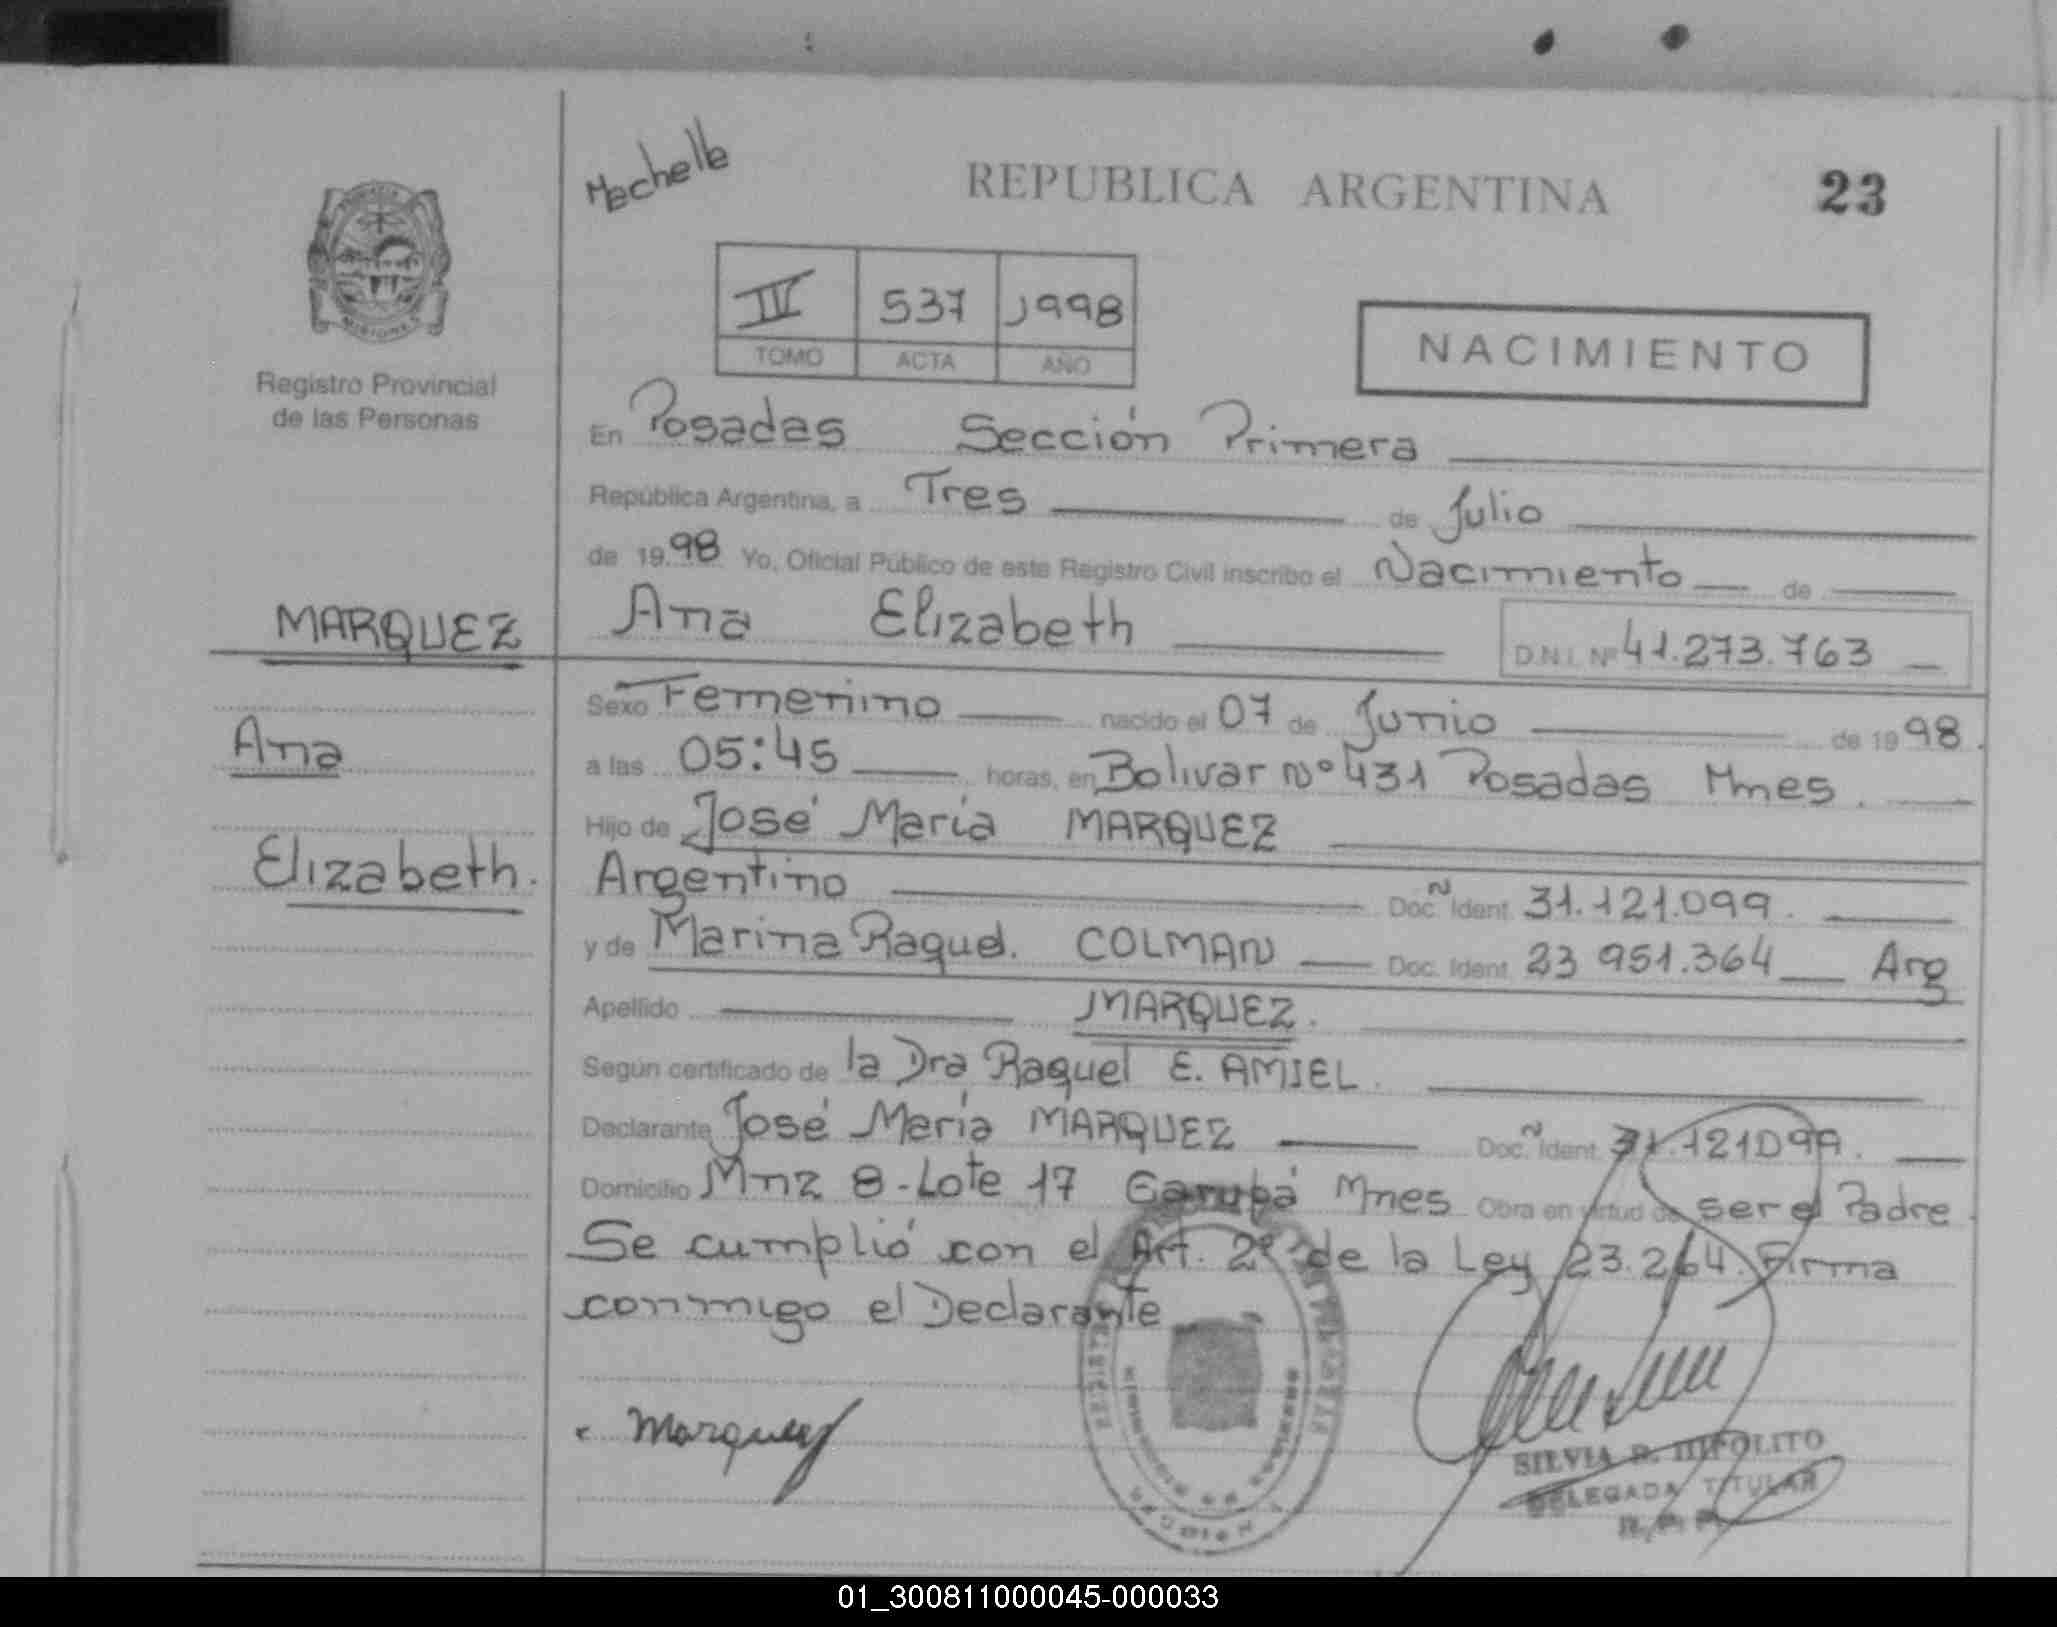 Mechelle
REPUBLICA ARGENTINA 23
MISIONES
Registro Provincial
de las Personas
III 537 1998
TOMO ACTA AÑO
NACIMIENTO
En Posadas Sección Primera
República Argentina, a Tres de Julio
de 1998 Yo, Oficial Público de este Registro Civil inscribo el Nacimiento de
MARQUEZ
Ana Elizabeth D.N.I. Nº 41.273.763
Sexo Femenino nacido el 07 de Junio de 1998.
Ana
a las 05:45 horas, en Bolivar Nº 431 Posadas Mnes.
Hijo de José María MARQUEZ
Elizabeth.
Argentino Doc. Ñ Ident. 31.121.099.
y de Marina Raquel. COLMAN Doc. Ident. 23 951.364 Arg
Apellido MARQUEZ.
Según certificado de la Dra Raquel E. AMIEL.
Declarante José María MARQUEZ Doc. Ñ Ident. 31.121099.
Domicilio Mnz 8-Lote 17 Garupá Mnes Obra en virtud de ser el Padre.
Se cumplió con el Art. 2º de la Ley 23.264. Firma
conmigo el Declarante
Marquez
SILVIA R. HIPOLITO
DELEGADA TITULAR
R.P.P.
01_300811000045-000033